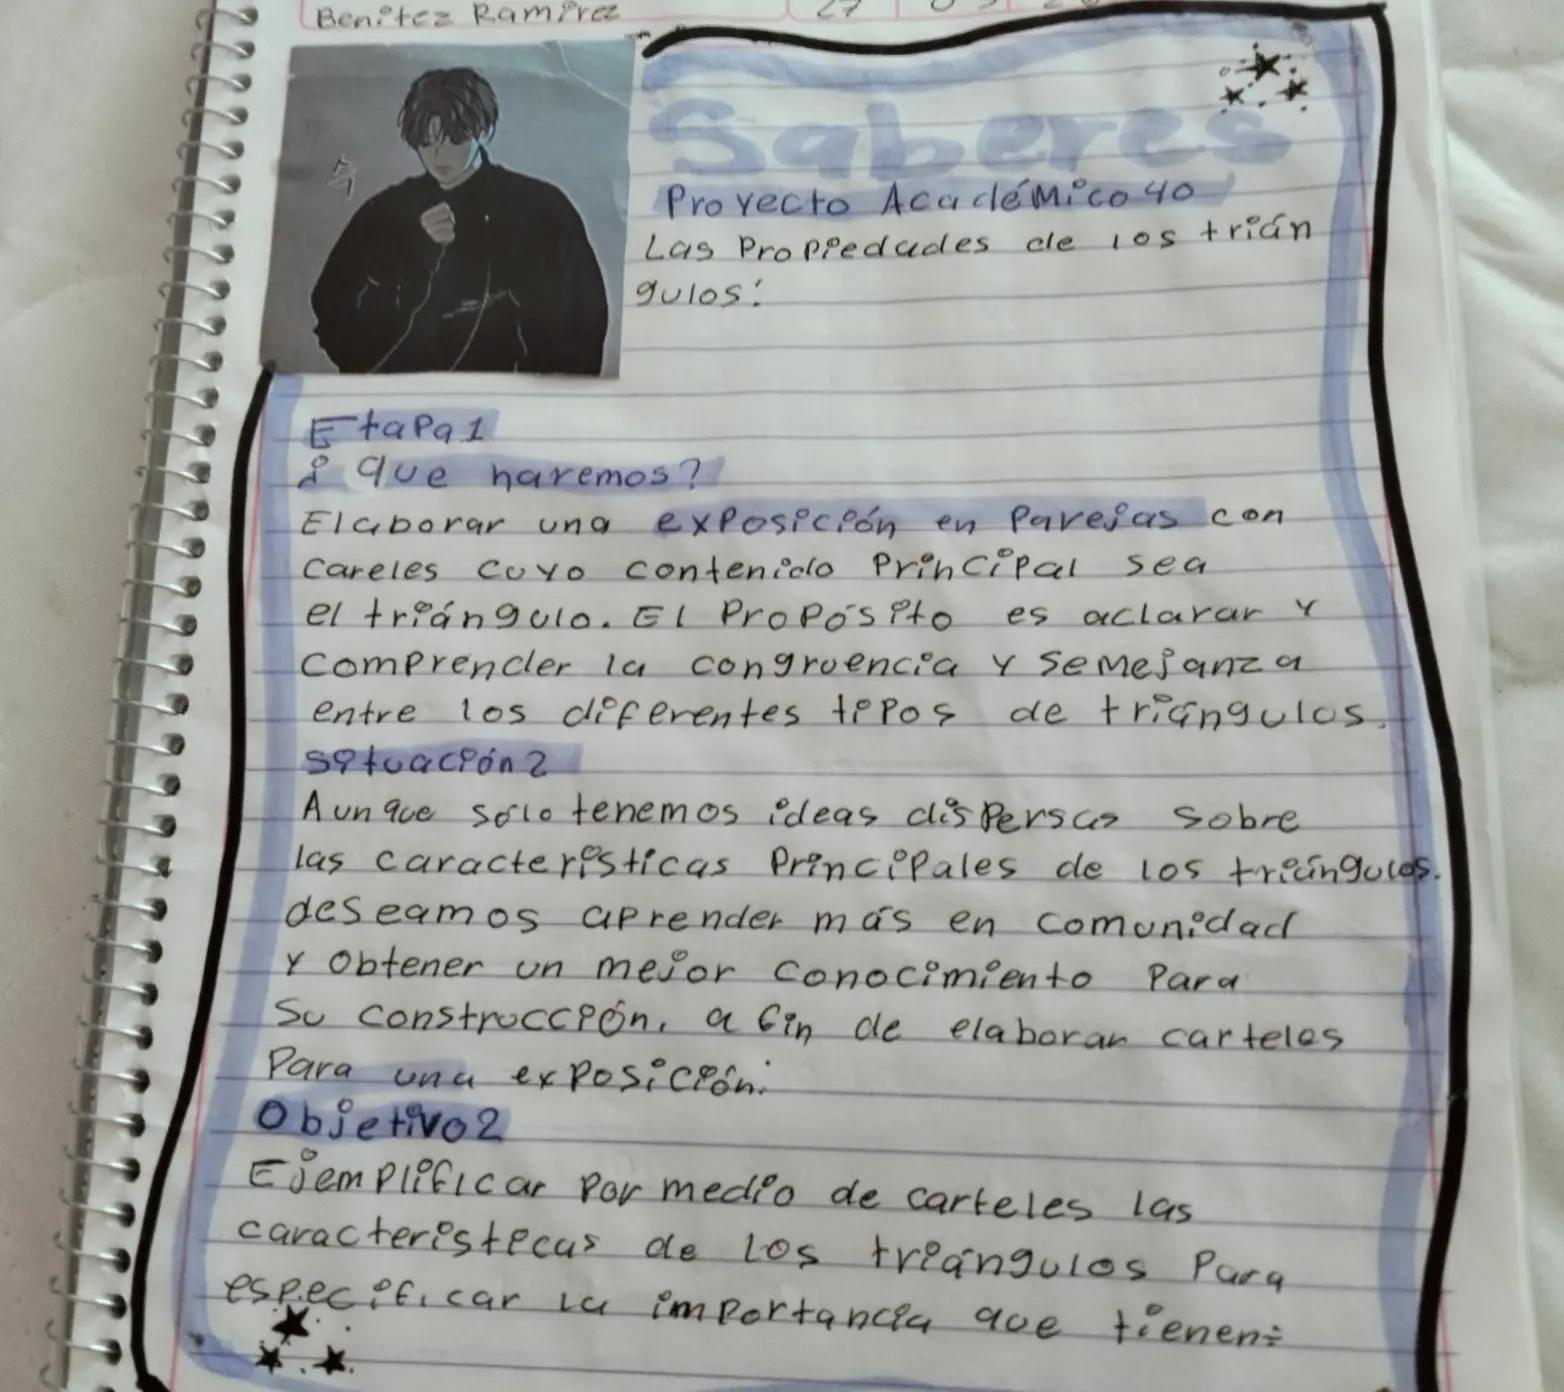 Benitez Ramirez
27
Saberes
Proyecto Académico 40
Las Propiedades de los trián
gulos:
Etapa 1
¿ que haremos?
Elaborar una exposición en parejas con
careles cuyo contenido principal sea
el triángulo. El Propósito es aclarar y
comprender la congruencia y semejanza
entre los diferentes tipos de triángulos.
Situación 2
Aunque sólo tenemos ideas dispersas sobre
las características Principales de los triángulos.
deseamos aprender más en comunidad
y obtener un mejor conocimiento Para
Su construcción, a fin de elaborar carteles
Para una exposición.
Objetivo 2
Ejemplificar Por medio de carteles las
caracteristicas de los triángulos Para
especificar la importancia que tienen: